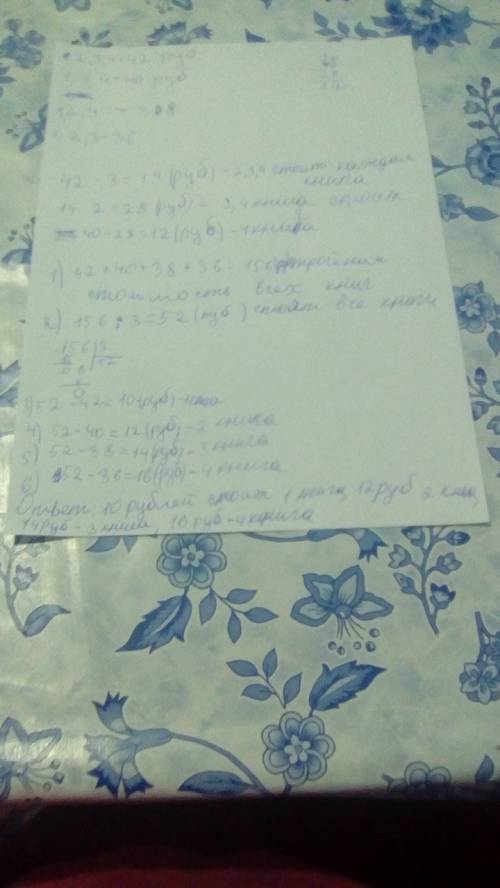 2,3,4-42 руб
1,3,4-40 руб
1,2,4 - 38
1,2,3-36
42 : 3=14(руб)-2,3,4 стоит каждая книга
14 · 2=28 руб)- 3,4 книга стоит
40-28=12(руб)-1 книга
1) 42+40+38+36=156 тройная
стоимость всех книг
2) 156:3=52(руб) стоят все книги
156 3
52
3) 52-42=10(руб)-1
4) 52-40=12(руб)-2 книга
5) 52-38=14(руб)-3 книга
6) 52-36=16(руб)-4 книга
Ответ: 10 рублей стоит 1 книга, 12 руб 2 книг,
14 руб-3 книга, 16 руб-4 книга